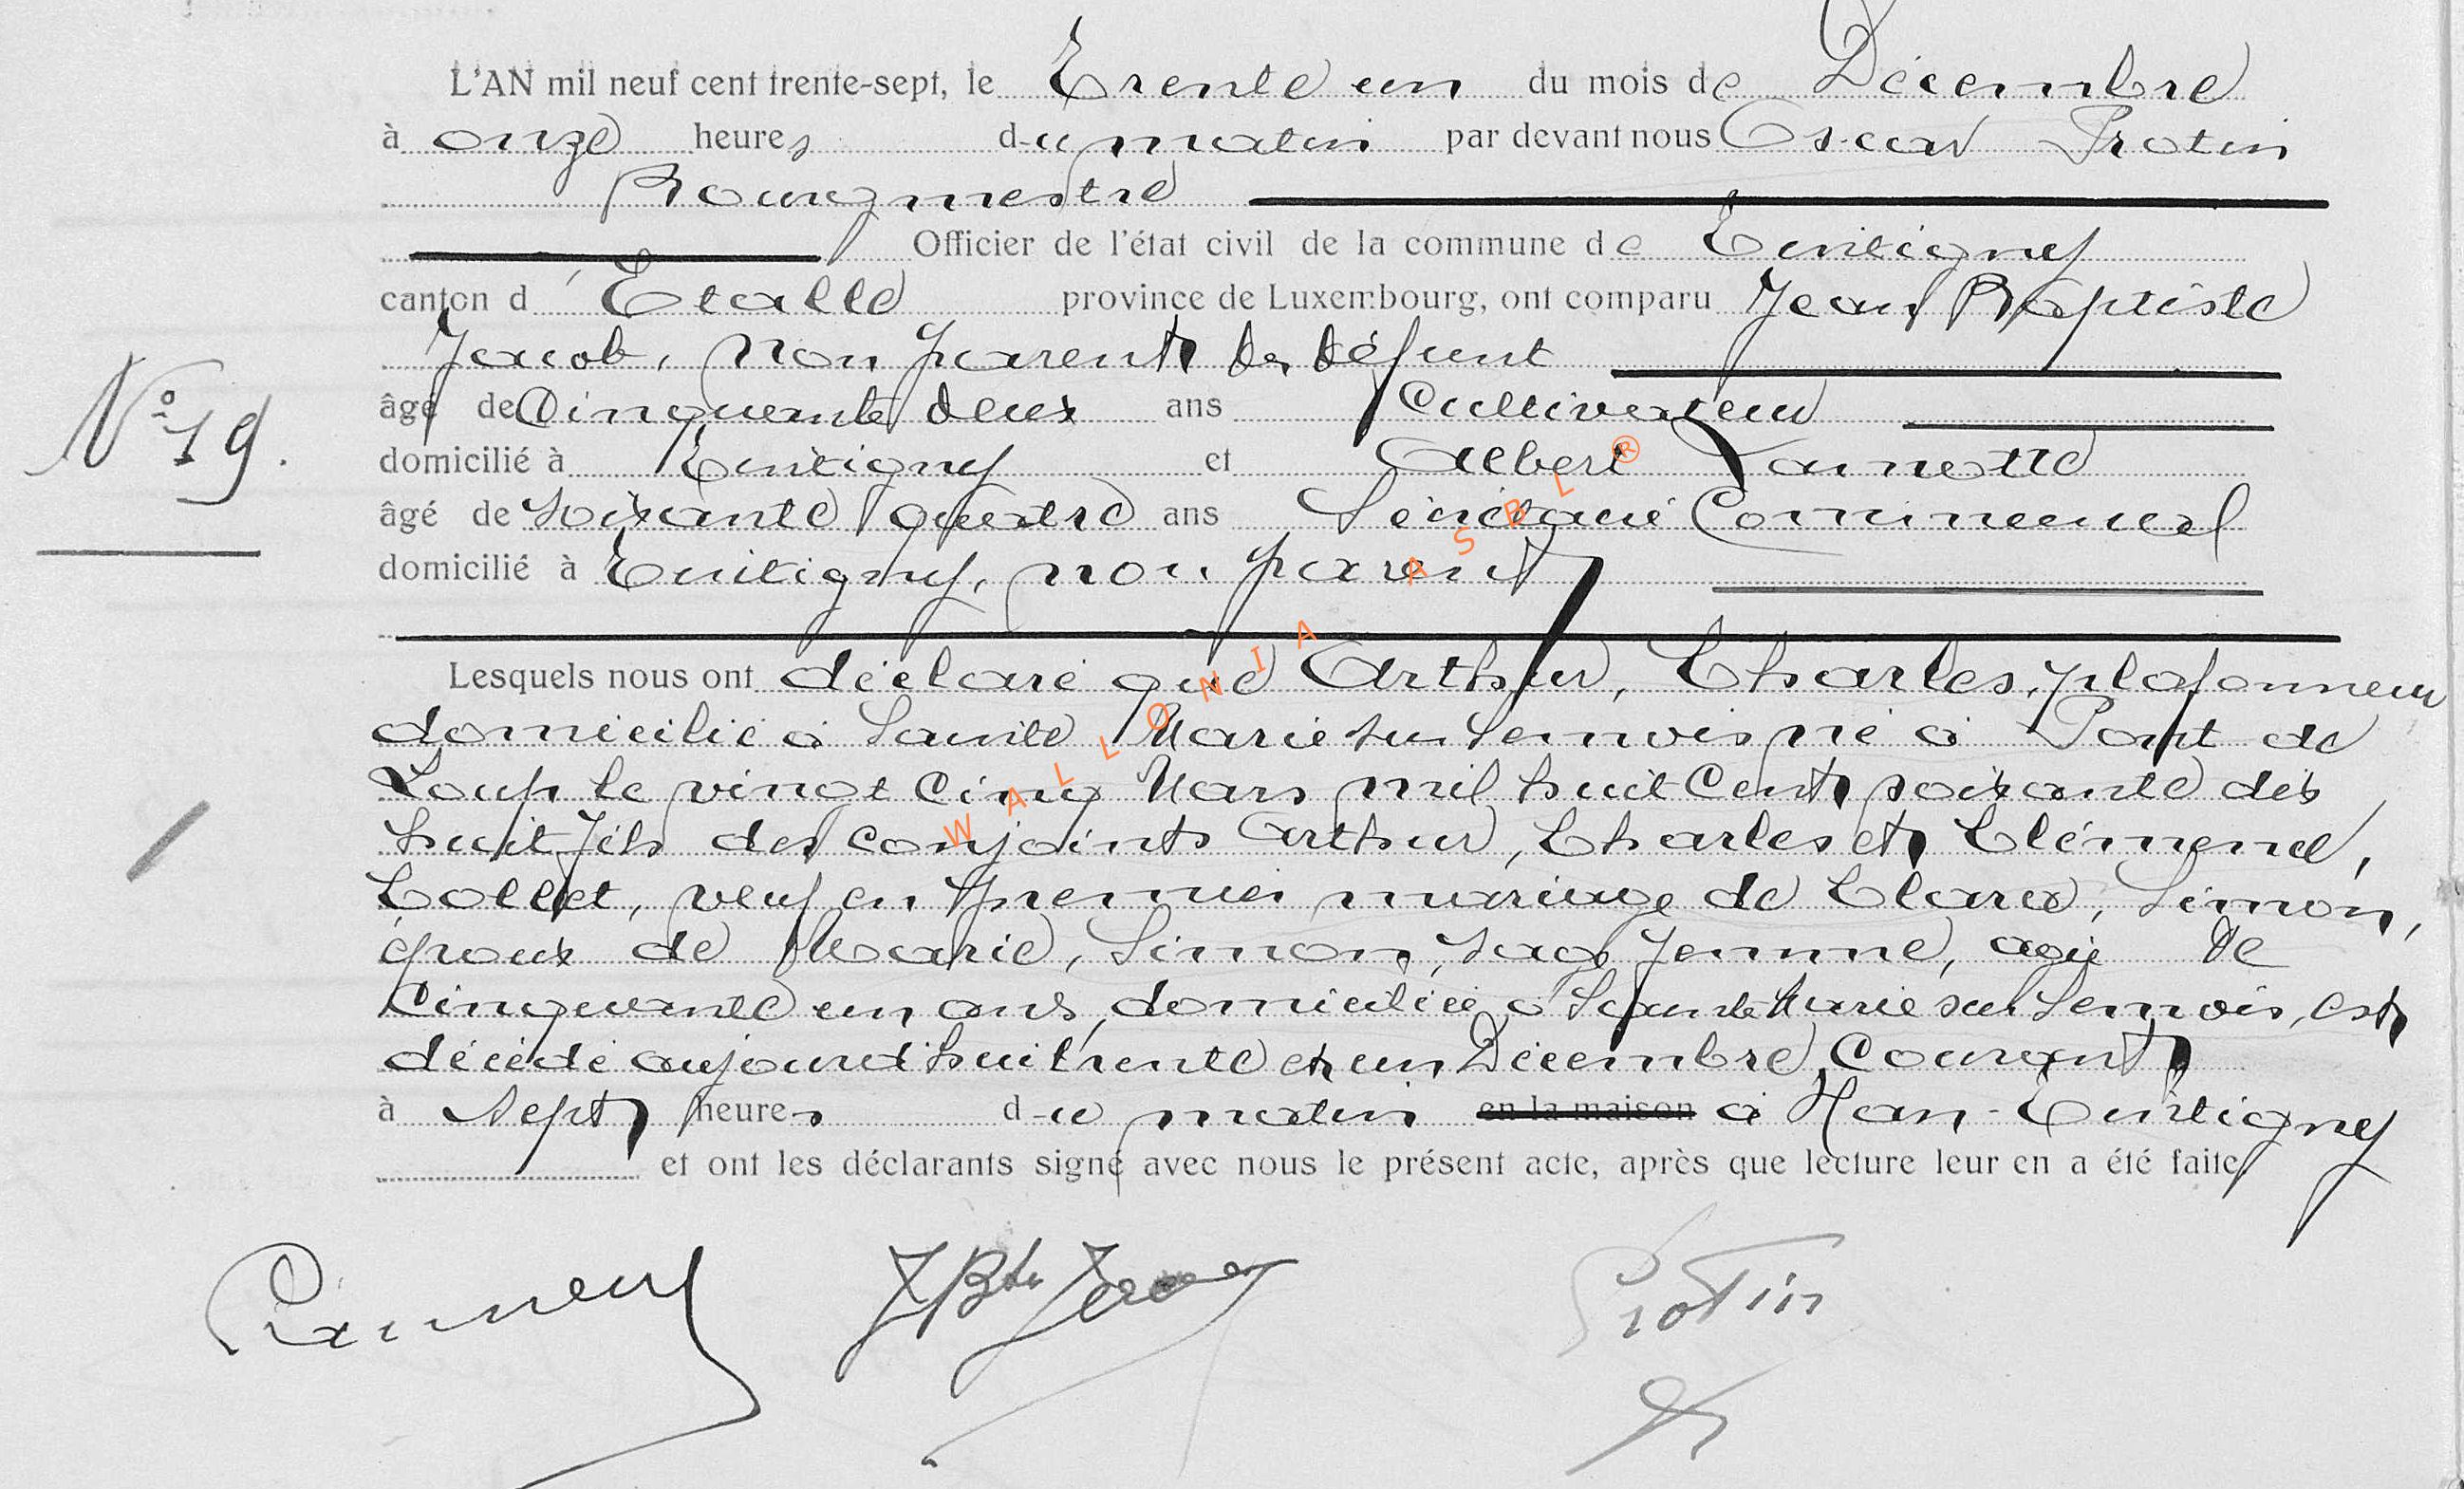 L'AN mil neuf cent trente-sept, le Trente un du mois de Décembre
à onze heures du matin par devant nous Oscar Protin
Bourgmestre
Officier de l'état civil de la commune de Tintigny
canton d'Etalle province de Luxembourg, ont comparu Jean Baptiste
Jacob, non parent du défunt
âgé de Cinquante deux ans Cultivateur
domicilié à Tintigny et Albert Lannotte
N° 19.
âgé de soixante quatre ans Secrétaire Communal
domicilié à Tintigny, non parent
Lesquels nous ont déclaré que Arthur, Charles, plafonneur
domicilié à Sainte Marie sur Semois né à Pont de
Loup le vingt cinq Mars mil huit Cent soixante dix
huit fils des conjoints Arthur, Charles et Clémence,
Collet, veuf en premier mariage de Clara, Simon,
époux de Marie, Simon, sage femme, agée de
Cinquante un ans, domiciliée à Sainte Marie sur Semois, est
décédé aujourd'hui trente et un Décembre Courant
à sept heures du matin en la maison à Han-Tintigny
et ont les déclarants signé avec nous le présent acte, après que lecture leur en a été faite
JBte Jacob Protin
WALLONIA ASBL®